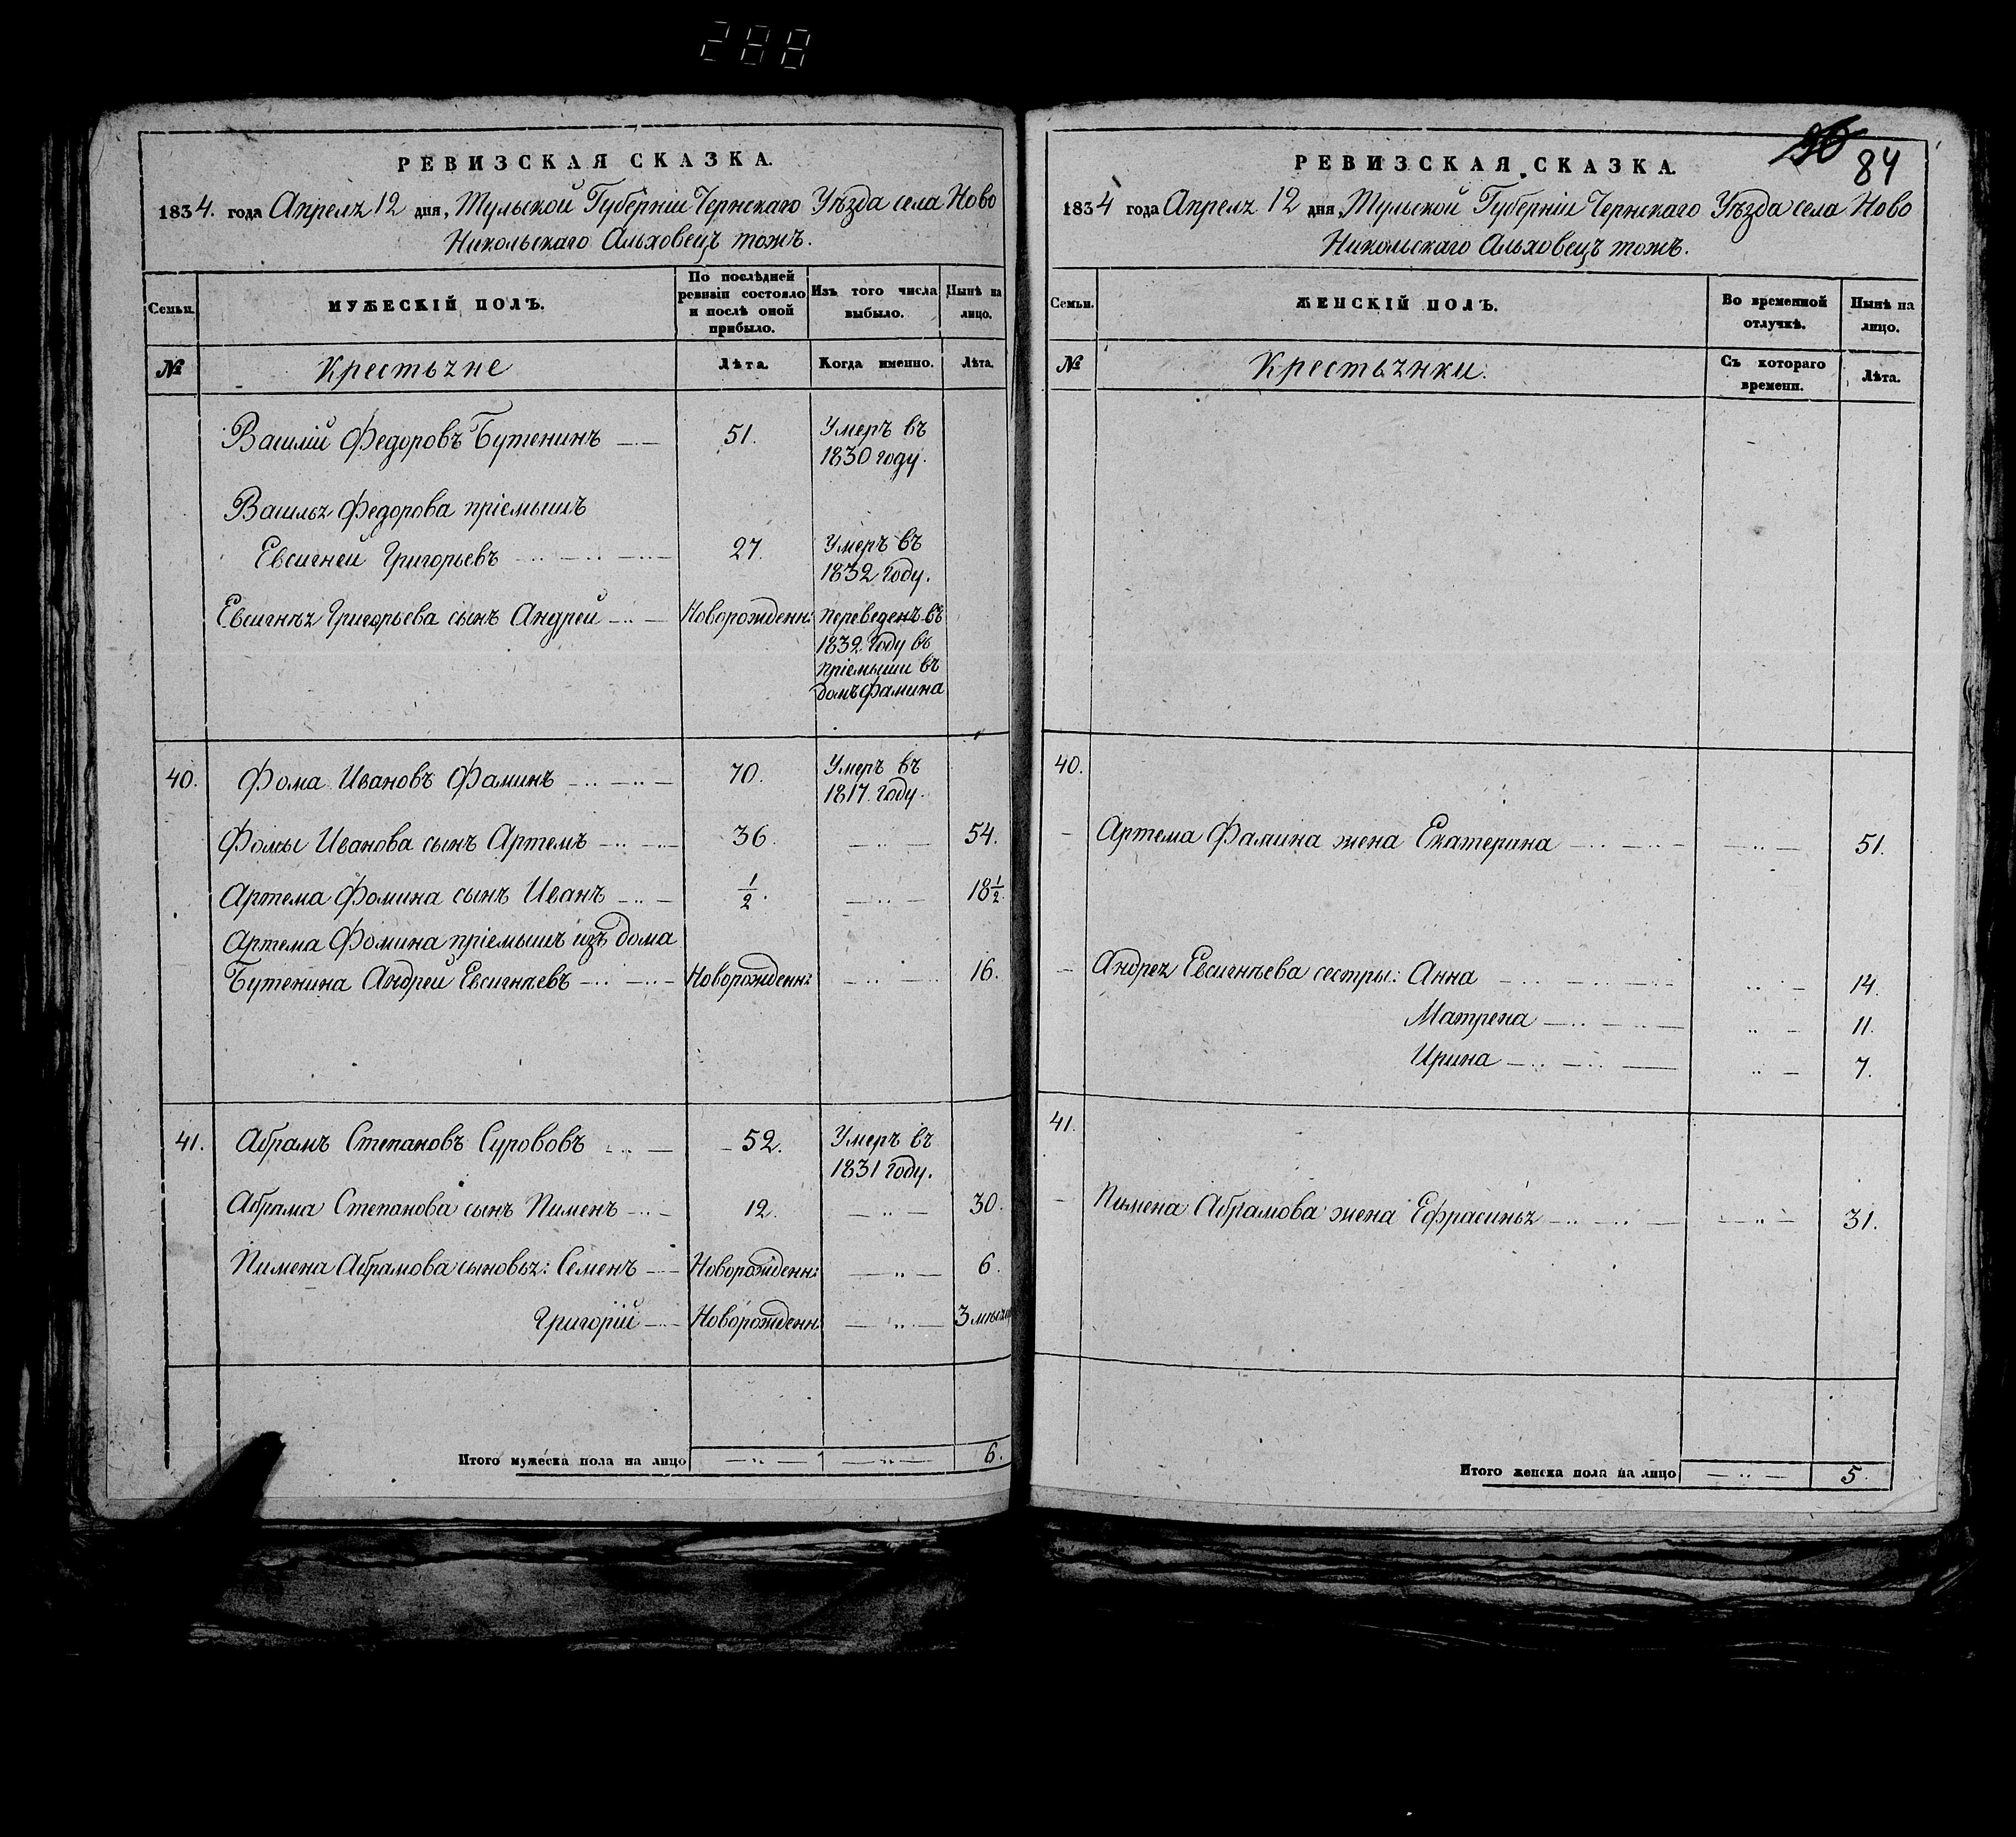 288
РЕВИЗСКАЯ СКАЗКА.
1834. года Апреля 12 дня, Тульской Губерніи Чернскаго Уѣзда села Ново
Никольскаго Альховецъ тожъ.
Семьи.
МУЖЕСКІЙ ПОЛЪ.
По послѣдней ревизіи состояло и послѣ оной прибыло.
Изъ того числа выбыло.
Нынѣ на лицо.
№
Крестьяне
Лѣта.
Когда именно.
Лѣта.
Василій Федоровъ Бутенинъ 51. Умеръ въ
1830 году.
Василья Федорова пріемышъ
Евсигней Григорьевъ 27. Умеръ въ
1832 году.
Евсигнѣя Григорьева сынъ Андрей Новорожденн: переведенъ въ
1832 году въ
пріемыши въ
домъ Фамина
40. Фома Ивановъ Фаминъ 70. Умеръ въ
1817 году.
Фомы Иванова сынъ Артемъ 36. 54.
Артема Фомина сынъ Иванъ 1/2. 18 1/2.
Артема Фомина пріемышъ изъ дома
Бутенина Андрей Евсигнѣевъ Новорожденн: 16.
41. Абрамъ Степановъ Сурововъ 52. Умеръ въ
1831 году.
Абрама Степанова сынъ Пименъ 12. 30.
Пимена Абрамова сыновья: Семенъ Новорожденн: 6.
Григорій Новорожденн: 3
Итого мужеска пола на лицо 6.
84
РЕВИЗСКАЯ СКАЗКА.
1834 года Апреля 12 дня, Тульской Губерніи Чернскаго Уѣзда села Ново
Никольскаго Альховецъ тожъ.
Семьи.
ЖЕНСКІЙ ПОЛЪ.
Во временной отлучкѣ.
Нынѣ на лицо.
№
Крестьянки.
Съ котораго времени.
Лѣта.
40.
Артема Фамина жена Екатерина 51.
Андрея Евсигнѣева сестры: Анна 14.
Матрена 11.
Ирина 7.
41.
Пимена Абрамова жена Ефрасинья 31.
Итого женска пола на лицо 5.